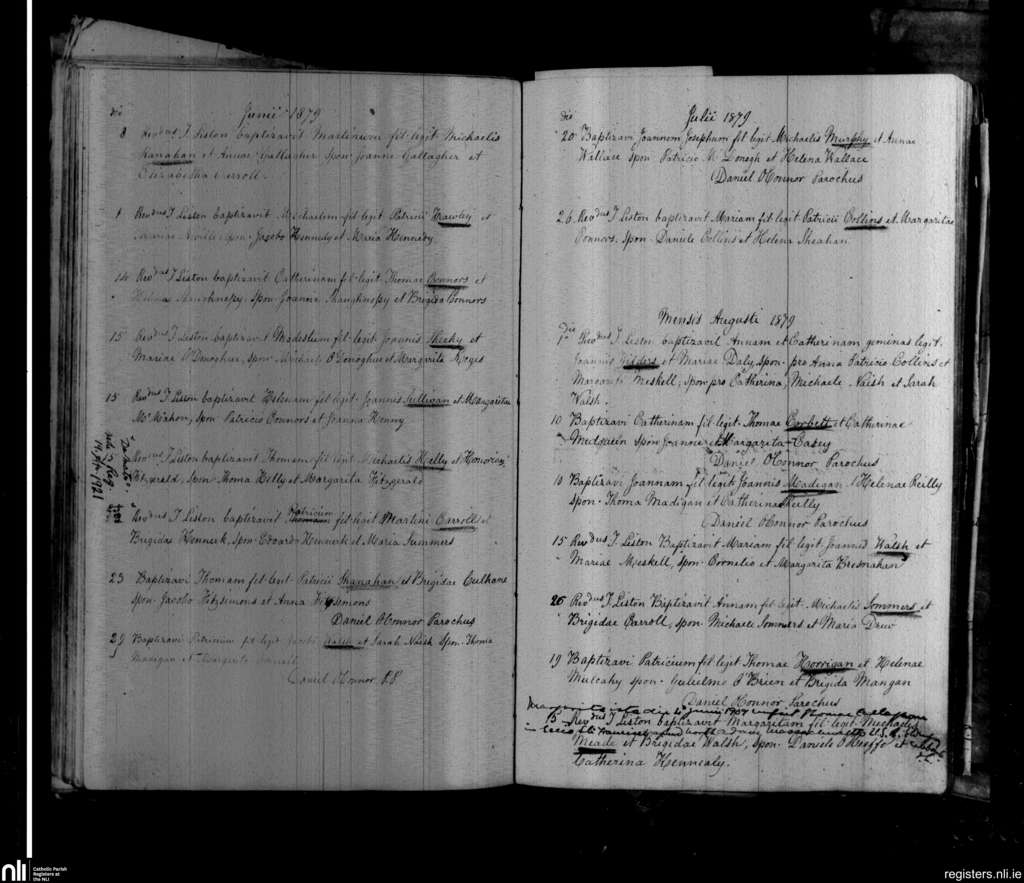 Junii 1879
die
8 Revdus T Liston baptizavit Martinum fil legit Michaelis
Hanahan et Annae Gallagher Spon Joanne Gallagher et
Elizabetha Carroll
Revdus T Liston baptizavit Michaelem fil legit Patricii Frawley et
Mariae Neville spon. Jacobo Kennedy et Maria Kennedy
14 Revdus T Liston baptizavit Catherinam fil legit Thomae Connors et
Helenae Shaughnessy, spon Joanne Shaughnessy et Brigida Connors
15 Revdus T Liston baptizavit Modestum fil legit Joannis Sheehy et
Mariae O'Donoghue, spon Michaele O'Donoghue et Margarita
15 Revdus T Liston baptizavit Helenam fil legit Joannis Sullivan et Margaritae
McMahon, Spon Patricio Connors et Joanna Kenny
Revdus T Liston baptizavit Thomam fil legit Michaelis Kelly et Honoriae
Fitzgerald, Spon Thoma Kelly et Margarita Fitzgerald
Patricium
Revdus T Liston baptizavit Thomam fil legit Martini Carroll et
Brigidae Kennerk, Spon Edoardo Kennerk et Maria Summers
23 Baptizavi Thomam fil legit Patricii Shanahan et Brigidae Culhane
Spon Jacobo Fitzsimons et Anna Fitzsimons
Daniel O'Connor Parochus
29 Baptizavi fil legit Jacobi et Sarah Naish Spon Thoma
Madigan et Margarita
Daniel O'Connor P.P.
Julii 1879
die
20 Baptizavi Joannem Josephum fil legit Michaelis Murphy et Annae
Wallace spon Patricio McDonogh et Helena Wallace
Daniel O'Connor Parochus
26 Revdus T Liston baptizavit Mariam fil legit Patricii Collins et Margaritae
Connors. Spon Daniele Collins et Helena Sheahan.
Mensis Augusti 1879
die
1 Revdus T Liston baptizavit Annam et Catherinam geminas legit.
Joannis Gilders et Mariae Daly, spon. pro Anna Patricio Collins et
Margarita Meskell, Spon pro Catherina, Michaele Naish et Sarah
Walsh.
10 Baptizavi Catherinam fil legit Thomae Corbett et Catherinae
spon Joanne et Margarita Casey
Daniel O'Connor Parochus
10 Baptizavi Joannam fil legit Joannis Madigan et Helenae Reilly
spon. Thoma Madigan et Catherina Reilly
Daniel O'Connor Parochus
15 Revdus T Liston Baptizavit Mariam fil legit Joannis Walsh et
Mariae Meskell, Spon Cornelio et Margarita Bresnahan
26 Revdus T Liston Baptizavit Annam fil legit Michaelis Sommers et
Brigidae Carroll, spon Michaele Sommers et Maria Drew
19 Baptizavi Patricium fil legit Thomae Horrigan et Helenae
Mulcahy spon. Gulielmo O'Brien et Brigida Mangan
Daniel O'Connor Parochus
15 Revdus T Liston baptizavit Margaritam fil legit Michaelis
Meade et Brigidae Walsh, Spon. Daniele O'Keeffe et
Catherina Kennealy.
nli
Catholic Parish
Registers at
the NLI
registers.nli.ie